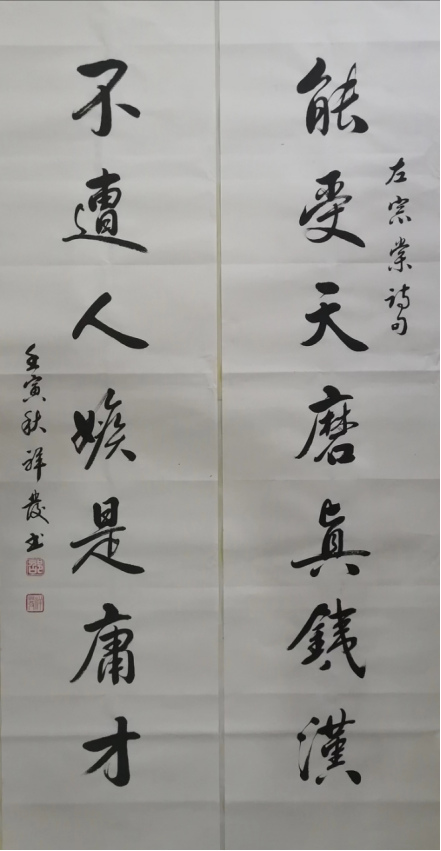 能受天磨眞鐵漢
左宗棠诗句
不遭人嫉是庸才
壬寅秋祥發书